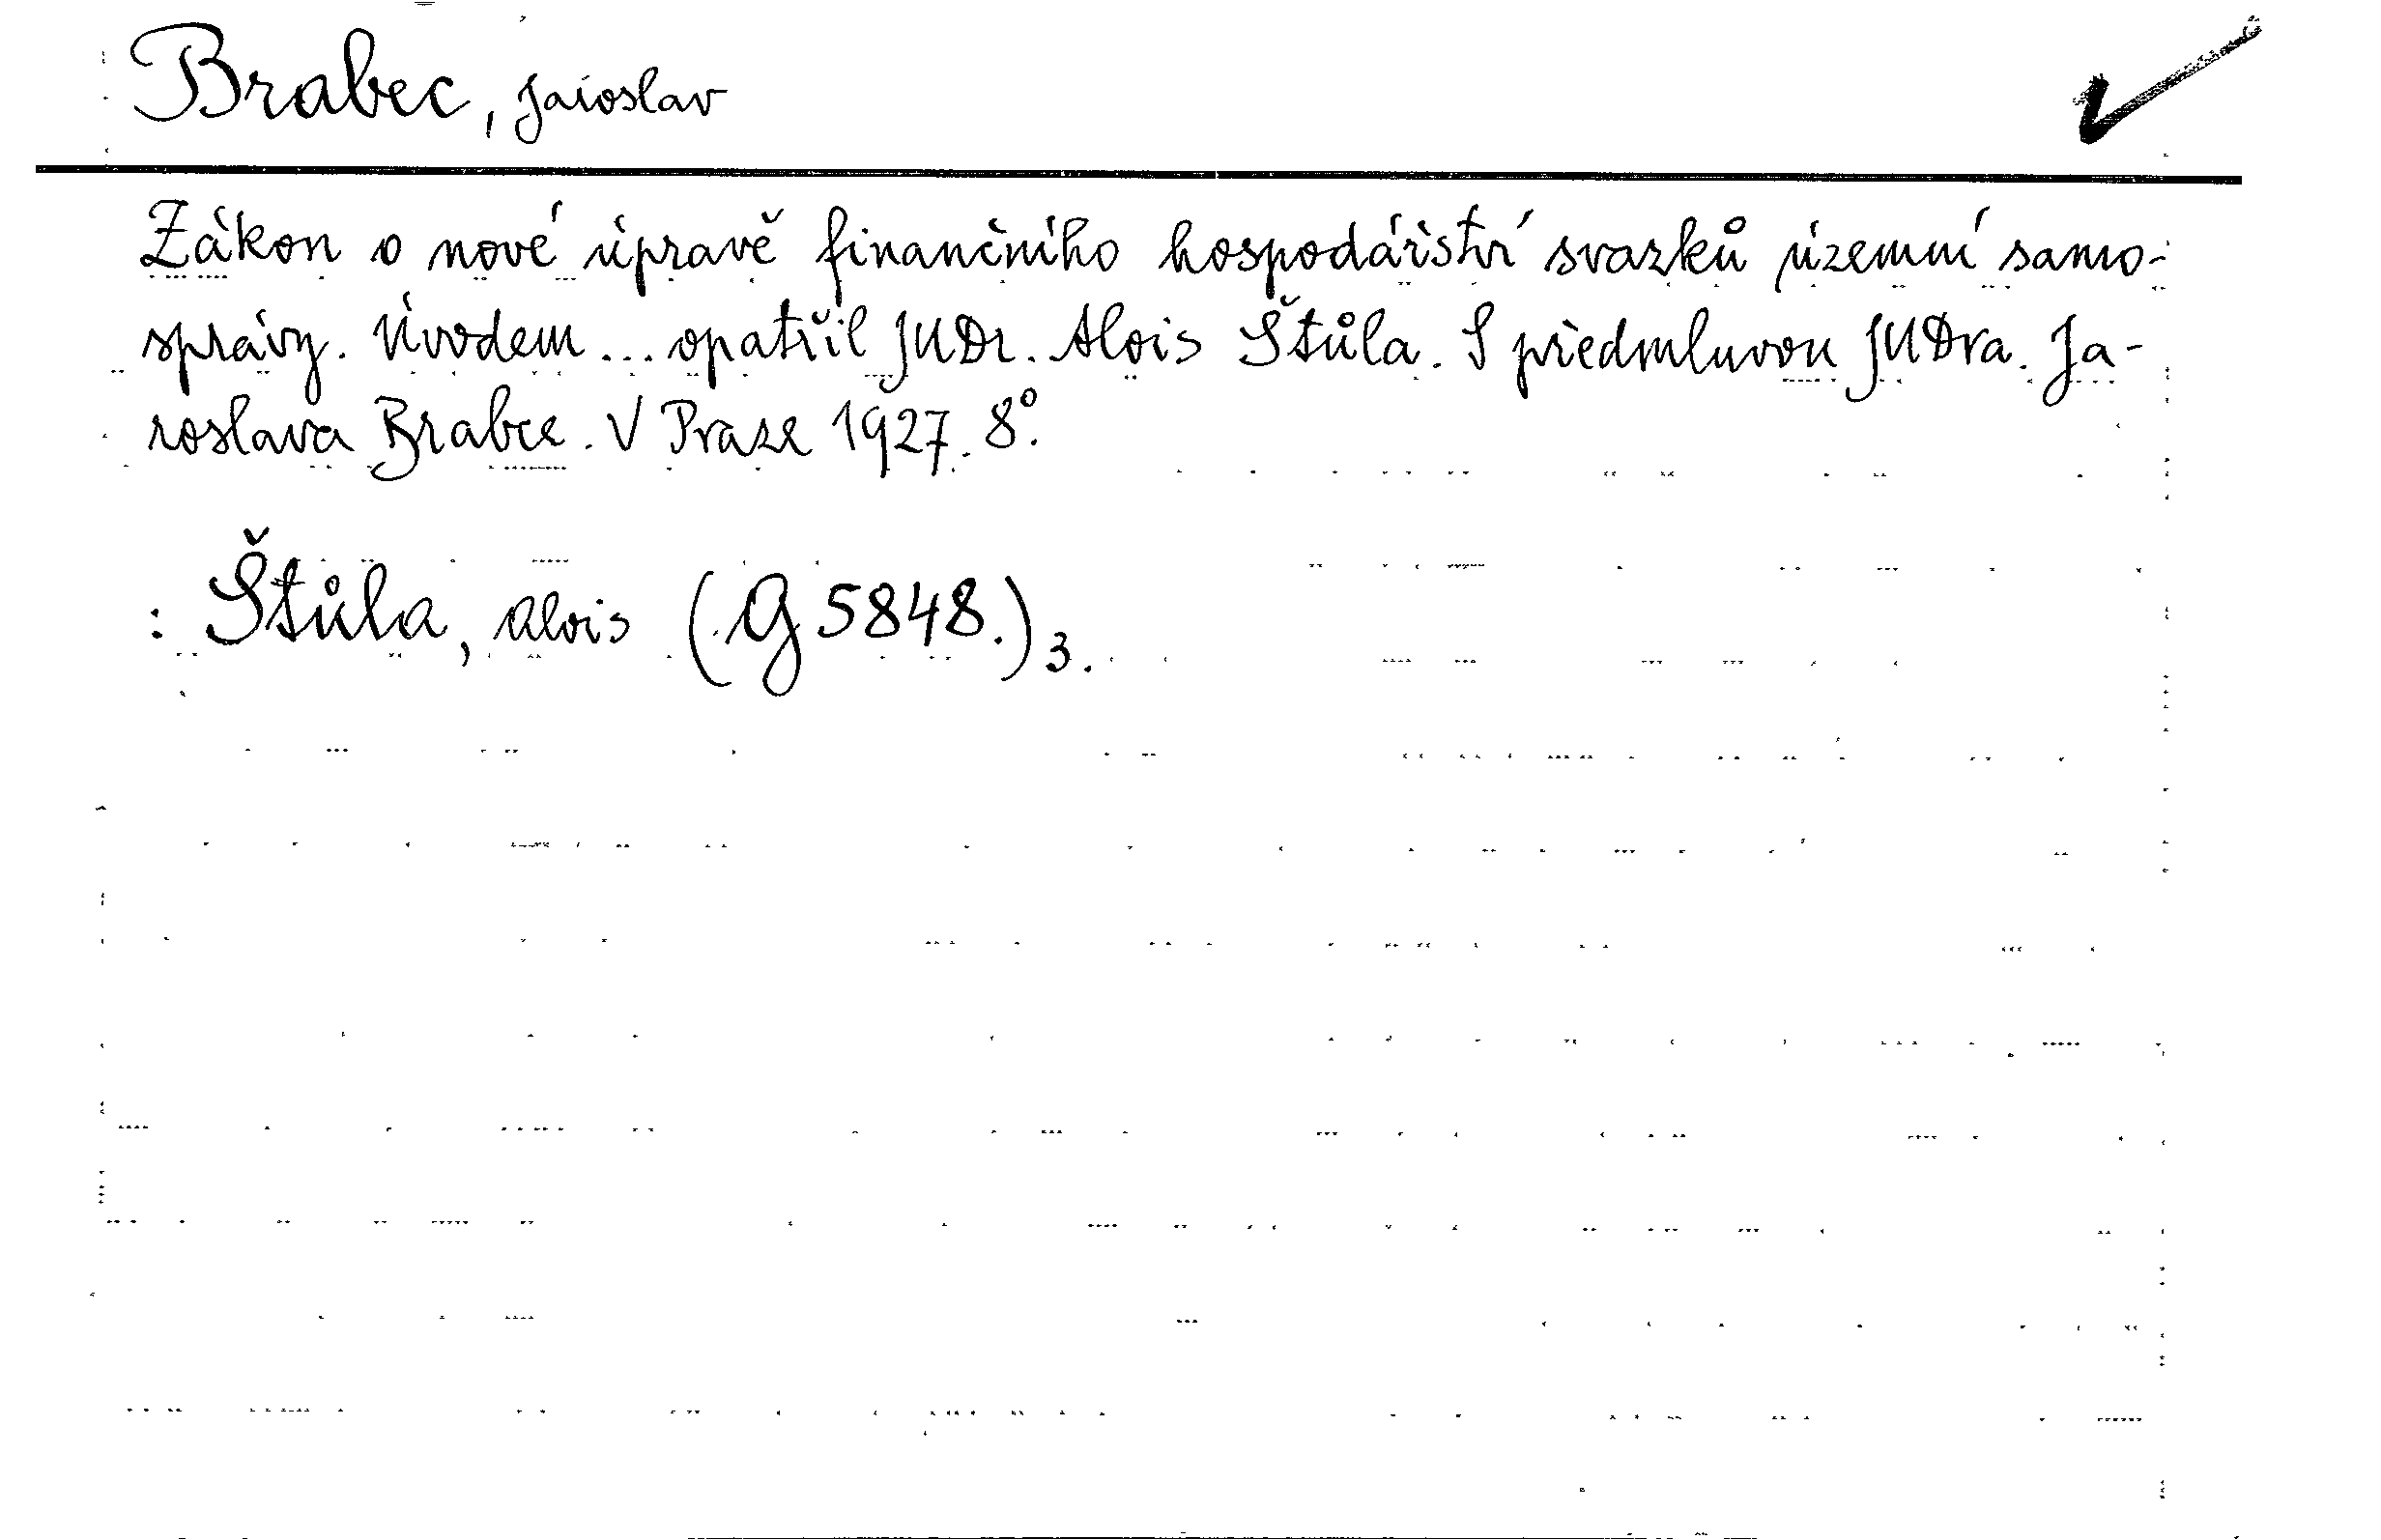 Brabec, Jaroslav
Zákon o nové úpravě finančního hospodářství svazků územní samo-
správy. Úvodem... opatřil JUDr. Alois Štůla. S předmluvou JUDra. Ja-
roslava Brabce. V Praze 1927. 8°.
: Štůla, Alois (G 5848.) 3.